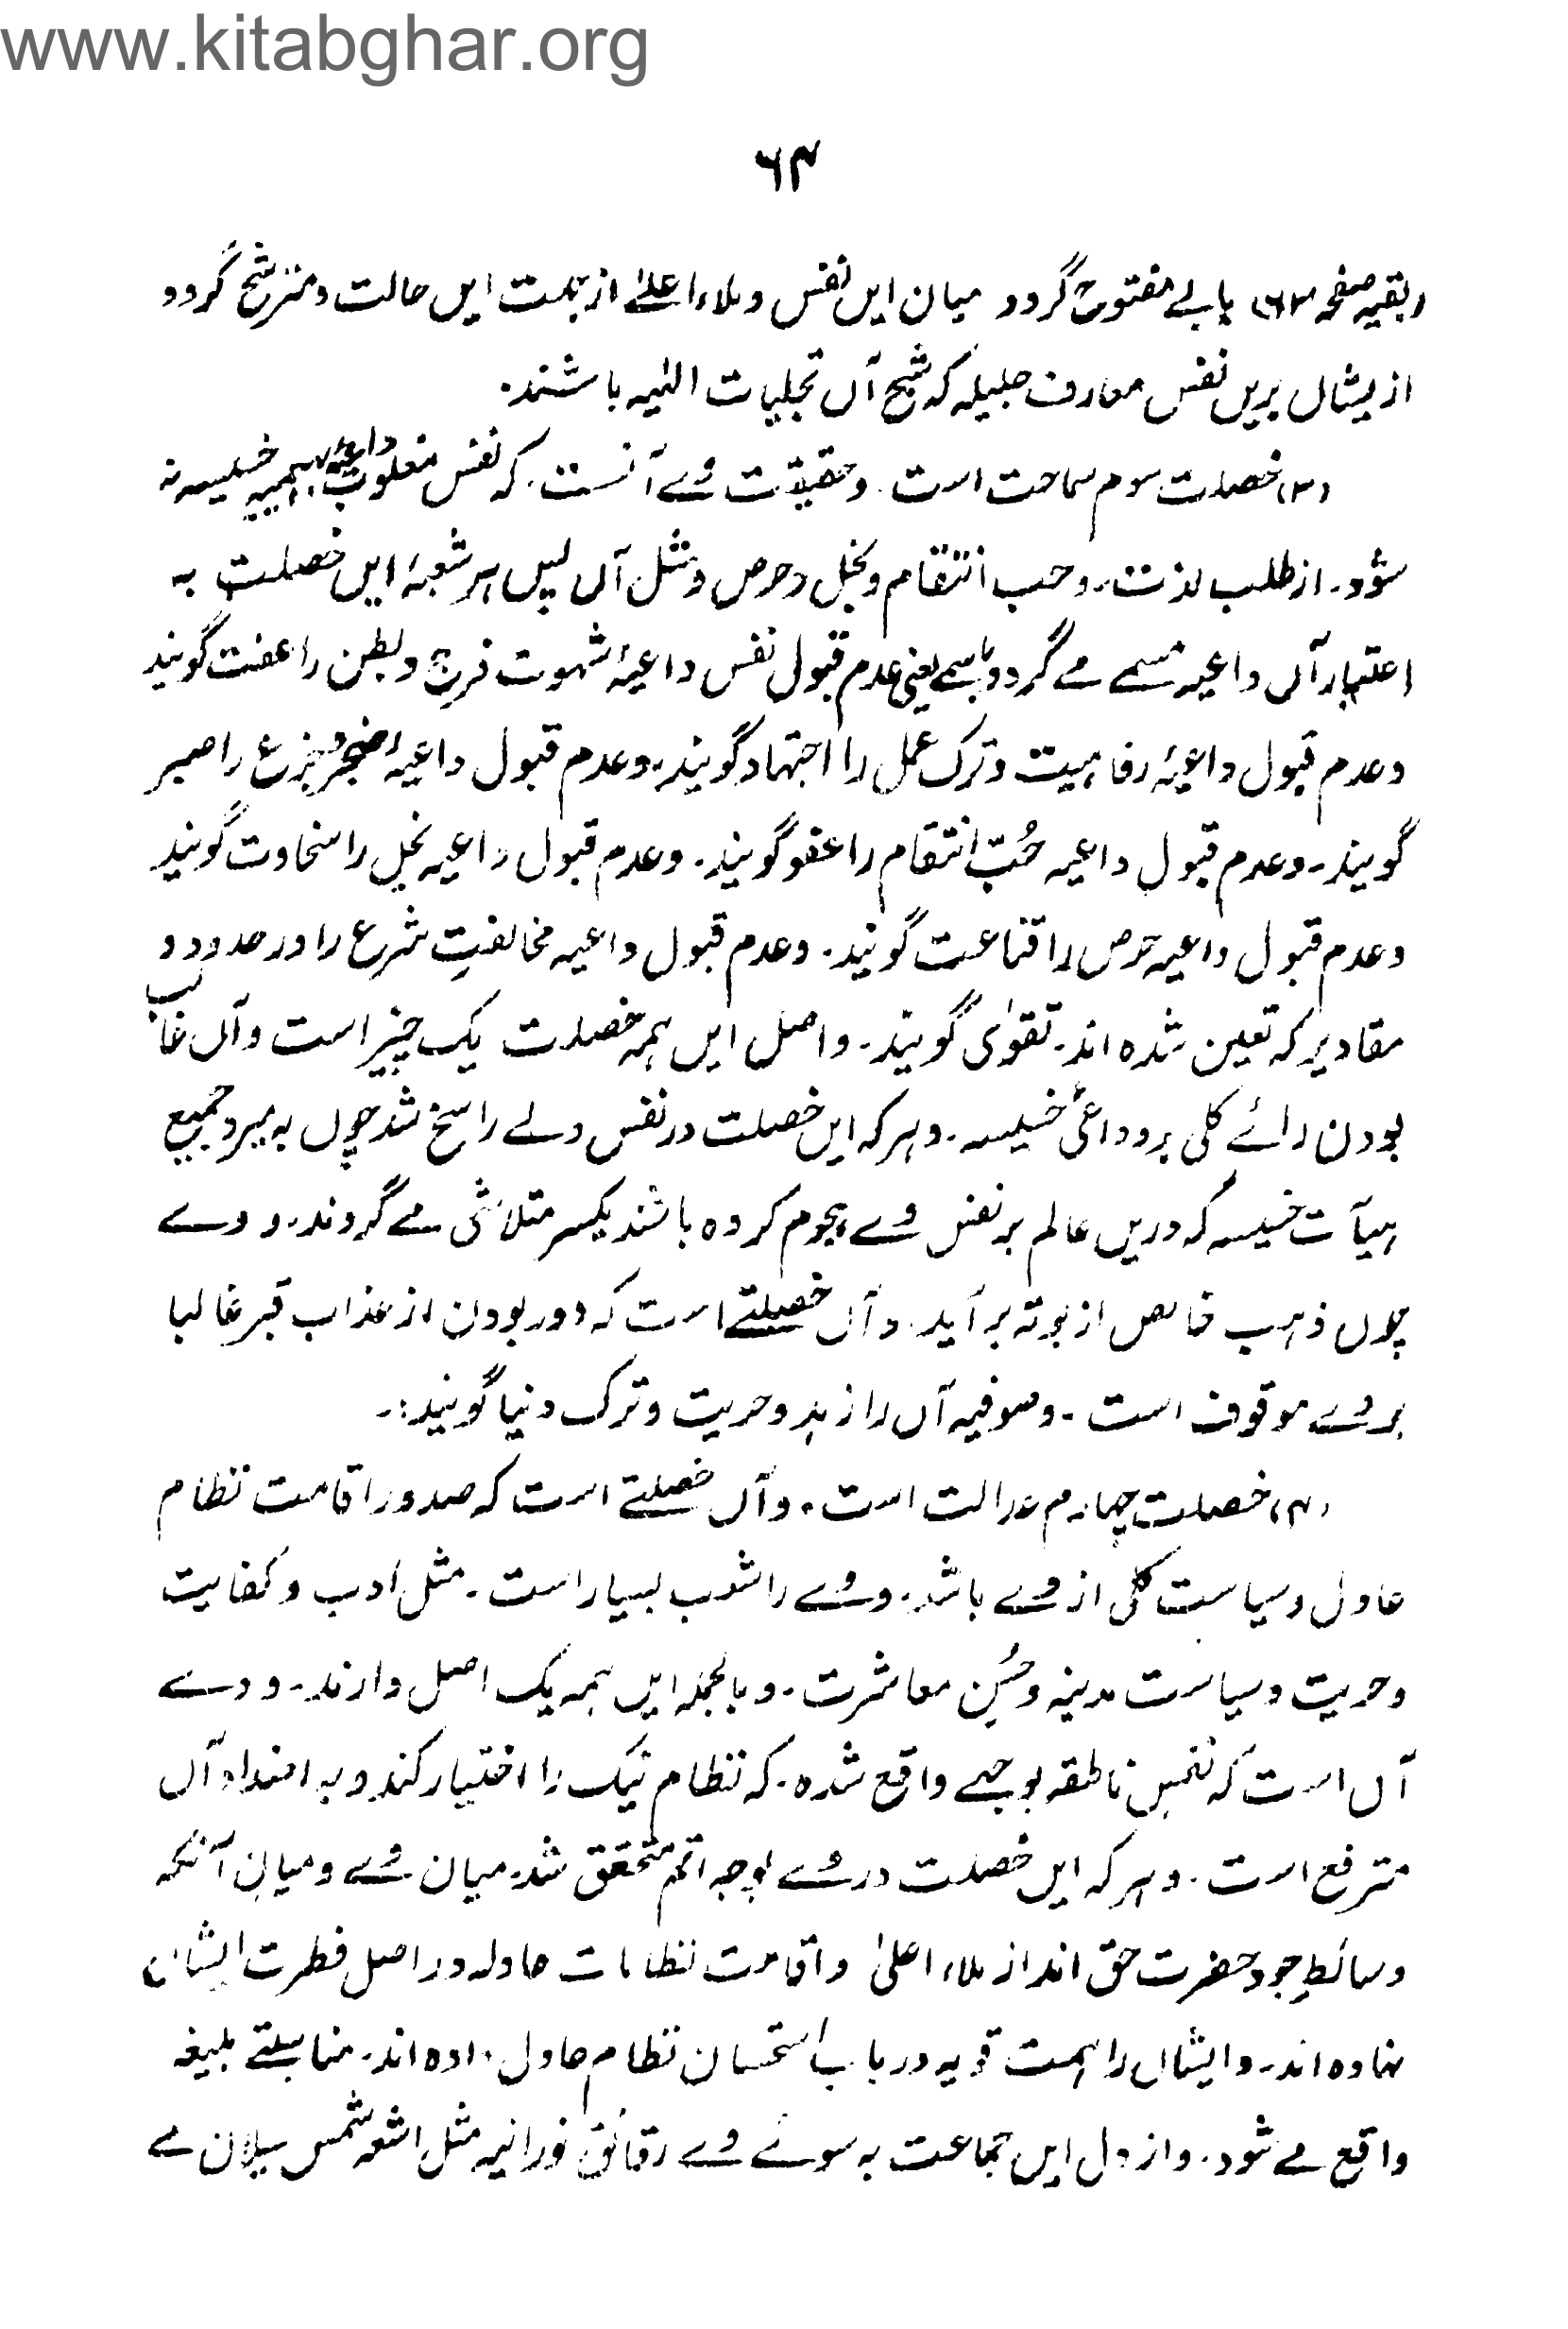 www.kitabghar.org
۶۴
(بقیہ صفحہ ۶۳) بابے مفتوح گردد میان ایں نفس و ملاء اعلےٰ از تلمت ایں حالت و مترشح گردد
از یشاں بریں نفس معارف جلیلہ کہ شبح آں تجلیات الٰہیہ باشند۔
(۳) خصلت سوم سماحت است۔ وحقیقت وے آنست۔ کہ نفس مغلوب داعیۂ بہیمیہ خسیسہ نہ
شود۔ از طلب لذت، وحب انتقام وبخل وحرص ومثل آں پس ہر شعبۂ ایں خصلت بہ
اعتبار آں داعیہ مسمے مے گردد باسمے یعنی عدم قبول نفس داعیۂ شہوت فرج وبطن را عفت گویند
وعدم قبول داعیۂ رفاہیت وترک عمل را اجتہاد گویند۔ وعدم قبول داعیۂ ضجر وجزع را صبر
گویند۔ وعدم قبول داعیہ حُبّ انتقام را عفو گویند۔ وعدم قبول داعیہ بخل را سخاوت گویند
وعدم قبول داعیہ حرص را قناعت گویند۔ وعدم قبول داعیہ مخالفتِ شرع را در حدود و
مقادیر کہ تعین شدہ اند۔ تقوٰی گویند۔ واصل ایں ہمہ خصلت یک چیز است وآں غالب
بودن رائے کلی بر دواعیٔ خسیسہ۔ وہر کہ ایں خصلت در نفس وے راسخ شد چوں بہ میرد جمیع
ہیآت خسیسہ کہ دریں عالم بر نفس وے ہجوم کردہ باشند یکسر متلاشی مے گردند۔ و وے
چوں ذہب خالص از بوتہ برآید۔ وآں خصلتے است کہ دور بودن از عذاب قبر غالبا
بر وے موقوف است۔ وصوفیہ آں را زہد وحریت وترک دنیا گویند:۔
(۴) خصلت چہارم عدالت است۔ وآں خصلتے است کہ صدور اقامت نظام
عادل وسیاست کلی از وے باشد۔ و وے را شعب بسیار است۔ مثل ادب وکفایت
وحریت وسیاست مدینہ وحُسن معاشرت۔ وبالجملہ ایں ہمہ یک اصل دارند۔ و وے
آں است کہ نفس ناطقہ بوجہے واقع شدہ۔ کہ نظام نیک را اختیار کند وبہ اضداد آں
مترفع است۔ وہر کہ ایں خصلت در وے بوجہ اتم متحقق شد۔ میان وے ومیان آنکہ
وسائطِ جود حضرت حق اند از ملاء اعلیٰ واقامت نظامات عادلہ در اصل فطرت ایشاں
نہادہ اند۔ وایشاں را ہمت قویہ در باب استحسان نظام عادل دادہ اند۔ مناسبتے بلیغہ
واقع مے شود۔ واز دل ایں جماعت بہ سوئے وے رقائق نورانیہ مثل اشعہ شمس سیلان مے